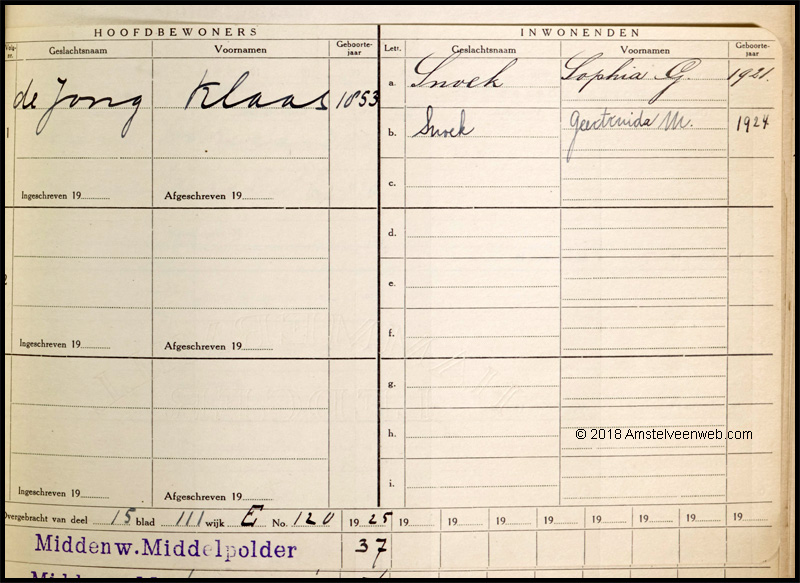 HOOFDBEWONERS INWONENDEN
Geslachtsnaam Voornamen Geboorte-jaar Lett. Geslachtsnaam Voornamen Geboorte-jaar
de Jong Klaas 1853 a. Snoek Sophia G. 1921.
1 b. Snoek Geertruida M. 1924
c.
Ingeschreven 19 Afgeschreven 19
d.
2 e.
f.
Ingeschreven 19 Afgeschreven 19
g.
h.
© 2018 Amstelveenweb.com
i.
Ingeschreven 19 Afgeschreven 19
Overgebracht van deel 15 blad 111 wijk E No. 120 1925 19 19 19 19 19 19 19 19
Middenw. Middelpolder 37